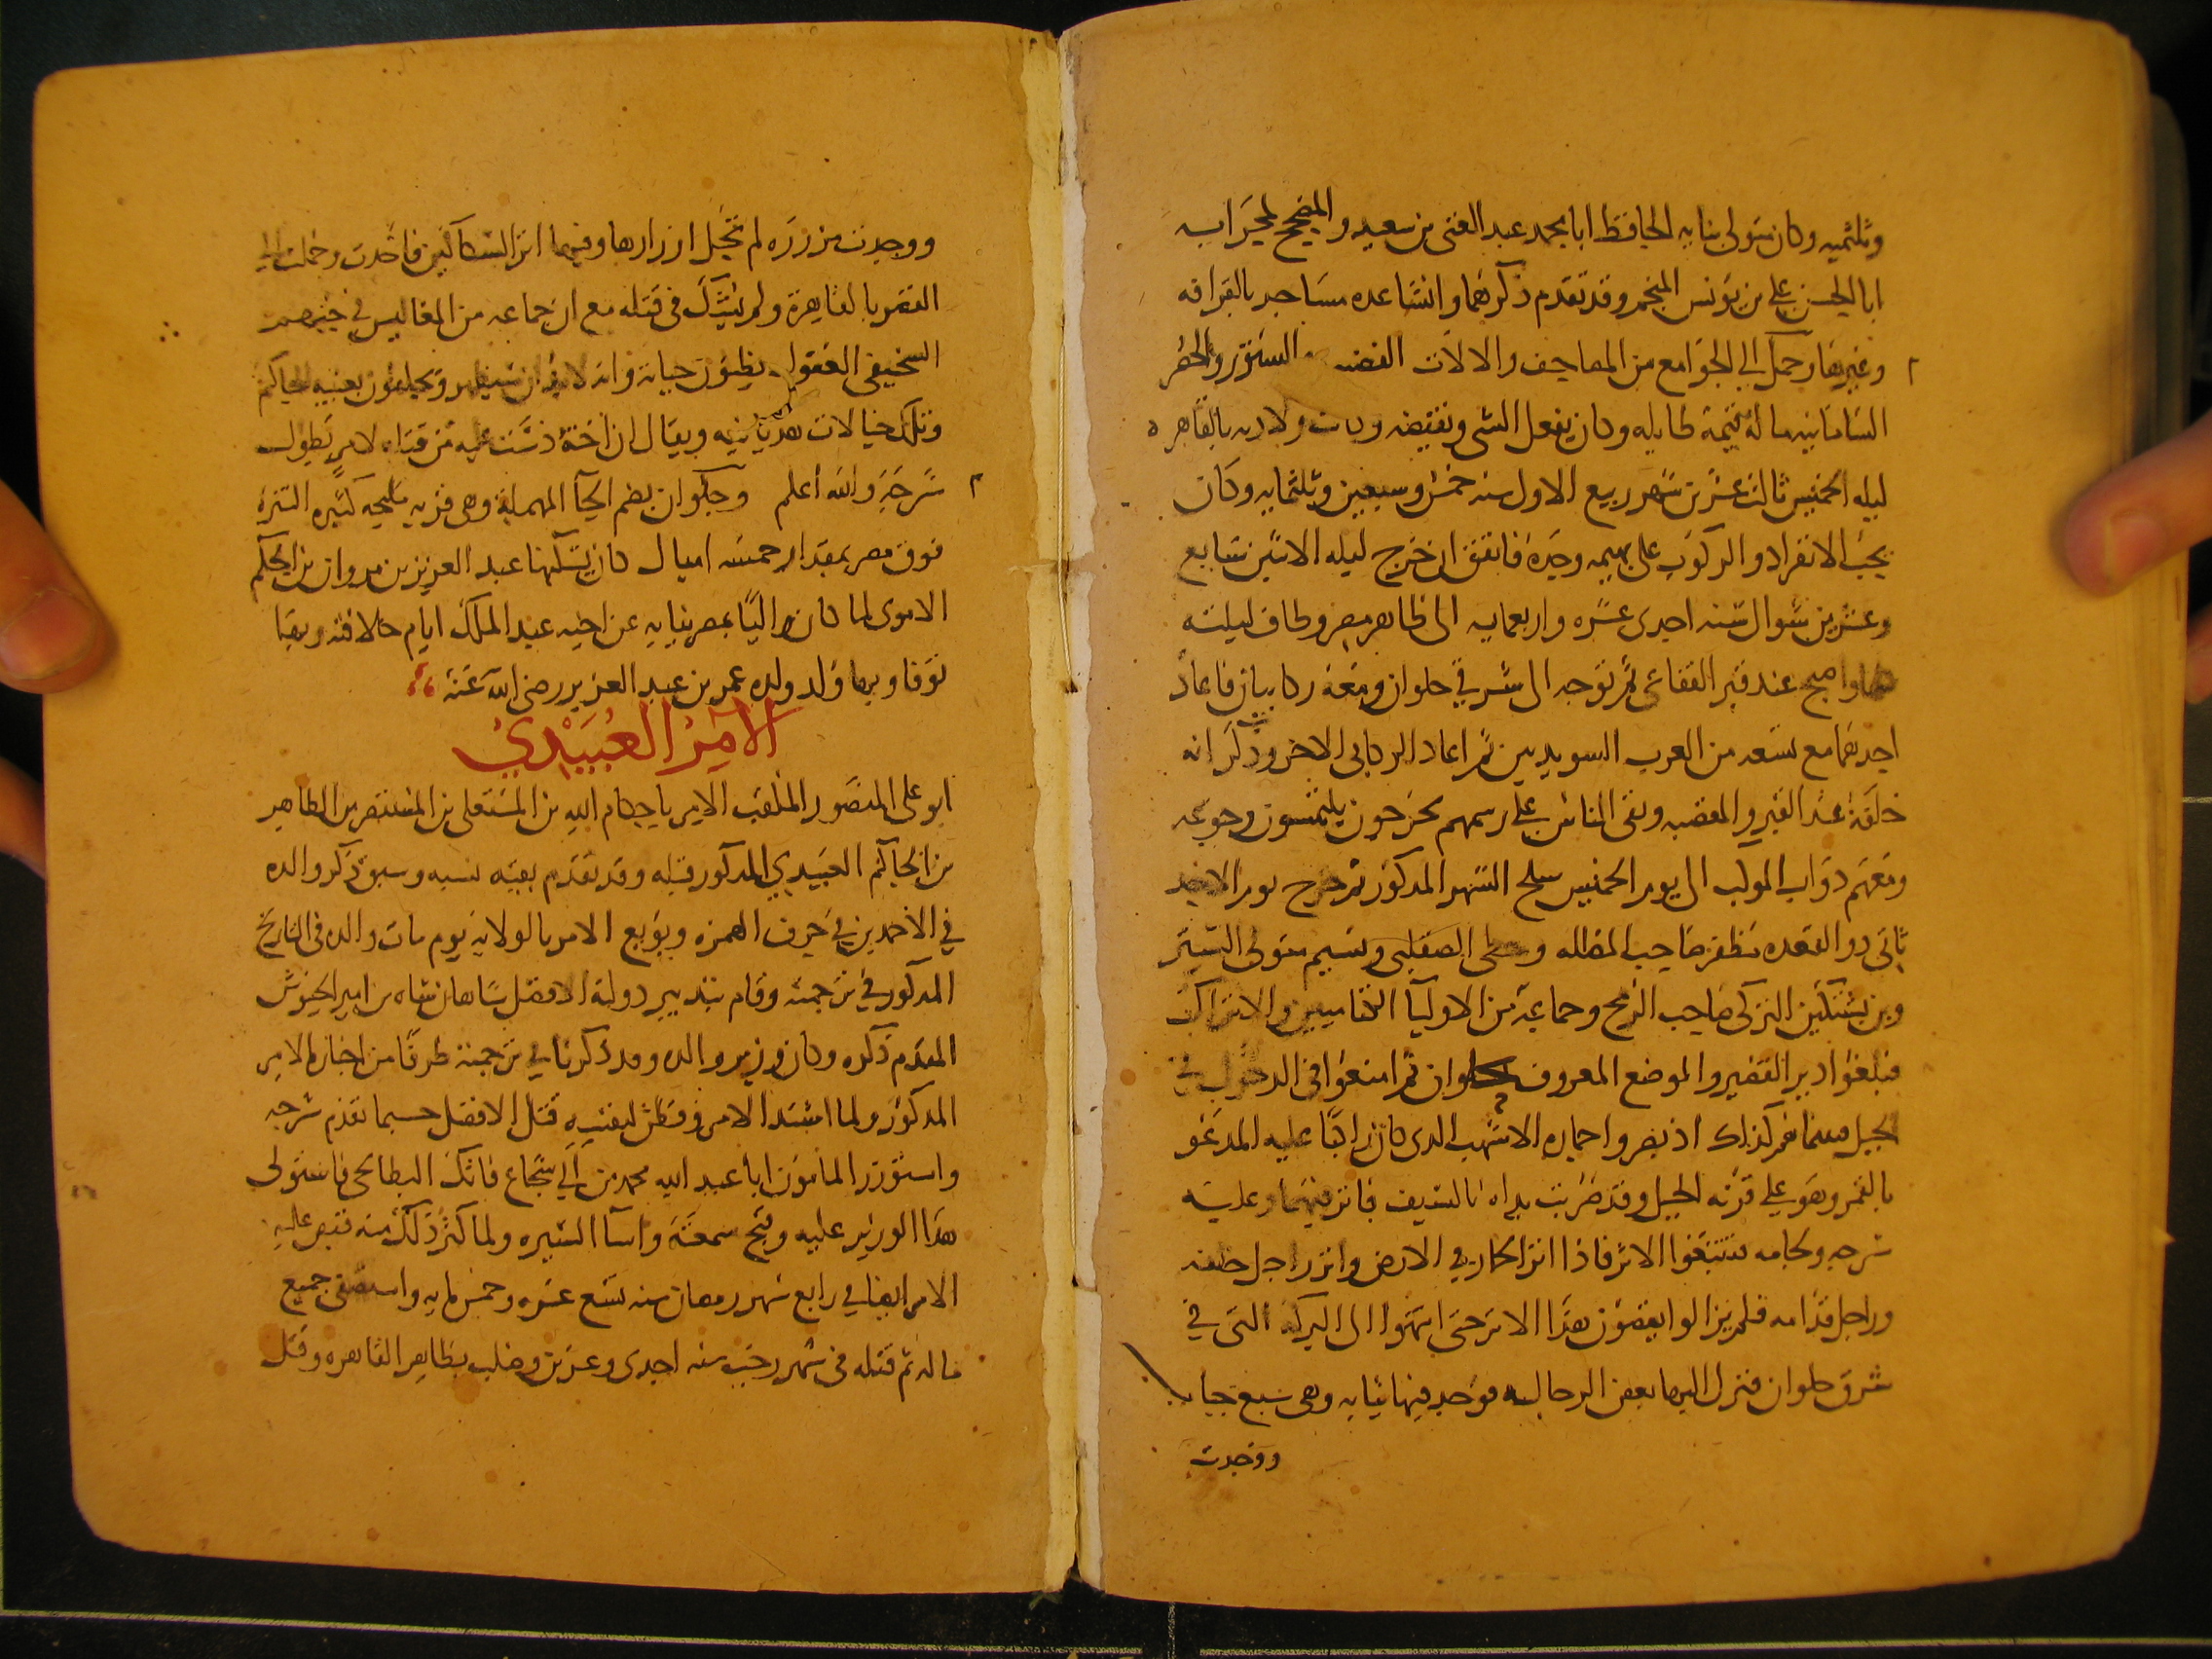 وثلثميه وكان متولى بنايه الحافظ ابا محمد عبد الغنى بن سعيد والمصحح لمحرابه
ابا الحسن على بن يونس المنجم وقد تقدم ذكرهما وانشا عده مساجد بالقرافه
وغيرها وحمل الى الجوامع من المصاحف والالات الفضه والستور والحصر
السامانيه ماله قيمة طايله وكان يفعل الشى وينقضه وكانت ولادته بالقاهره
ليله الخميس ثالث عشرين شهر ربيع الاول سنه خمس وسبعين وثلثمايه وكان
يحب الانفراد والركوب على بهيمه وحده فاتفق ان خرج ليله الاثنين سابع
وعشرين شوال سنه احدى عشره واربعمايه الى ظاهر مصر وطاف ليلته
كلها واصبح عند قبر الفقاعى ثم توجه الى شرقى حلوان ومعه ركابيان فاعاد
احدهما مع تسعه من العرب السويديين ثم اعاد الركابى الاخر وذكر انه
خلفه عند القبر والمقصبه وبقى الناس على رسمهم يخرجون يلتمسون رجوعه
ومعهم دواب الموكب الى يوم الخميس سلخ الشهر المذكور ثم خرج يوم الاحد
ثانى ذو القعده مظفر صاحب المظله وحطى الصقلبى ونسيم متولى الستر
وبن بشتكين التركى صاحب الرمح وجماعة من الاوليآ الكتاميين والاتراك
فبلغوا دير القصير والموضع المعروف بحلوان ثم امنعوا فى الدخول فى
الجبل فبينما هم كذلك اذ بصروا حماره الاشهب الذى كان راكبا عليه المدعو
بالقمر وهو على قرنه الجبل وقد ضربت يداه بالسيف فاثر فيهما وعليه
سرجه ولجامه فتتبعوا الاثر فاذا اثر الحمار فى الارض واثر راجل خلفه
وراجل قدامه فلم يزالوا يقصون هذا الاثر حتى انتهوا الى البركه التى فى
شرق حلوان فنزل اليها بعض الرجاله فوجد فيها ثيابه وهى سبع جباب
ووجدت
ووجدت مزرره لم تحل ازرارها وفيها اثر السكاكين فاخذت وحملت الى
القصر بالقاهرة ولم يشك فى قتله مع ان جماعه من المغاليين فى حبهم
السخيفى العقول يظنون حياته وانه لابد ان سيظهر ويحلفون بغيبه الحاكم
وتلك خيالات هذيانيه ويقال ان اخته دست عليه من قتله لامر يطول
شرحه والله اعلم وحلوان بضم الحآ المهملة وهى قريه مليحه كثيره النزه
فوق مصر بمقدار خمسه اميال كان يسكنها عبد العزيز بن مروان بن الحكم
الاموى لما كان واليًا بمصر نيابه عن اخيه عبد الملك ايام خلافته وبها
توفا وبها ولد ولده عمر بن عبد العزيز رضى الله عنه
الآمر العُبَيْدي
ابو على المنصور الملقب الامر باحكام الله بن المستعلى بن المستنصر بن الظاهر
بن الحاكم العبيدى المذكور قبله وقد تقدم بقيه نسبه وسبق ذكر والده
فى الاحمدين فى حرف الهمزه وبويع الامر بالولايه يوم مات والده فى التاريخ
المذكور فى ترجمته وقام بتدبير دولته الافضل شاهان شاه بن امير الجيوش
المقدم ذكره وكان وزير والده وقد ذكرنا فى ترجمته طرفًا من اخبار الامر
المذكور ولما اشتد الامر وفطن لنفسه قتل الافضل حسبما تقدم شرحه
واستوزر المامون ابا عبد الله محمد بن ابى شجاع فاتك البطايحى فاستولى
هذا الوزير عليه وقبح سمعته واسآ السيره ولما كثر ذلك منه قبض عليه
الامر ايضا فى رابع شهر رمضان سنه تسع عشره وخمس مايه واستصفى جميع
ماله ثم قتله فى شهر رجب سنه احدى وعشرين وصلب بظاهر القاهره وقتل